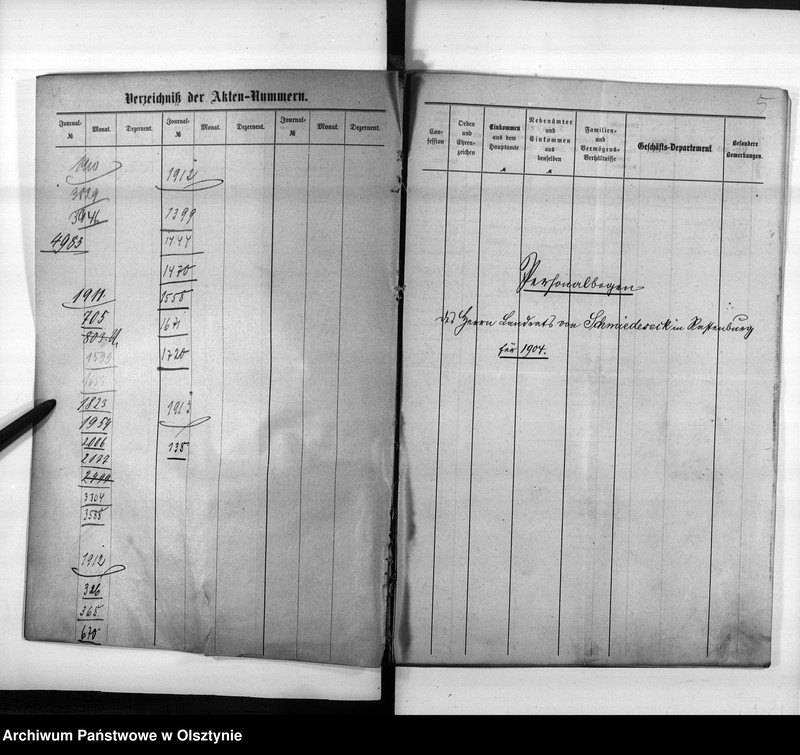 Verzeichniß der Akten-Nummern.
Journal- № Monat. Dezernent. Journal- № Monat. Dezernent. Journal- № Monat. Dezernent.
1912
1399
4983
1470
1911
1558
705
1671
1720
1823
1913
1954
2086
138
2177
3704
3588
1912
326
365
670
5
Con-
fession
Orden
und
Ehren-
zeichen
Einkommen
aus dem
Hauptamte
Nebenämter
und
Einkommen
aus
denselben
Familien-
und
Vermögens-
Verhältnisse
Geschäfts-Departement
Besondere
Bemerkungen.
Personalbogen
des Herrn Landrats von Schmiedeseck in Rastenburg
für 1904.
Archiwum Państwowe w Olsztynie